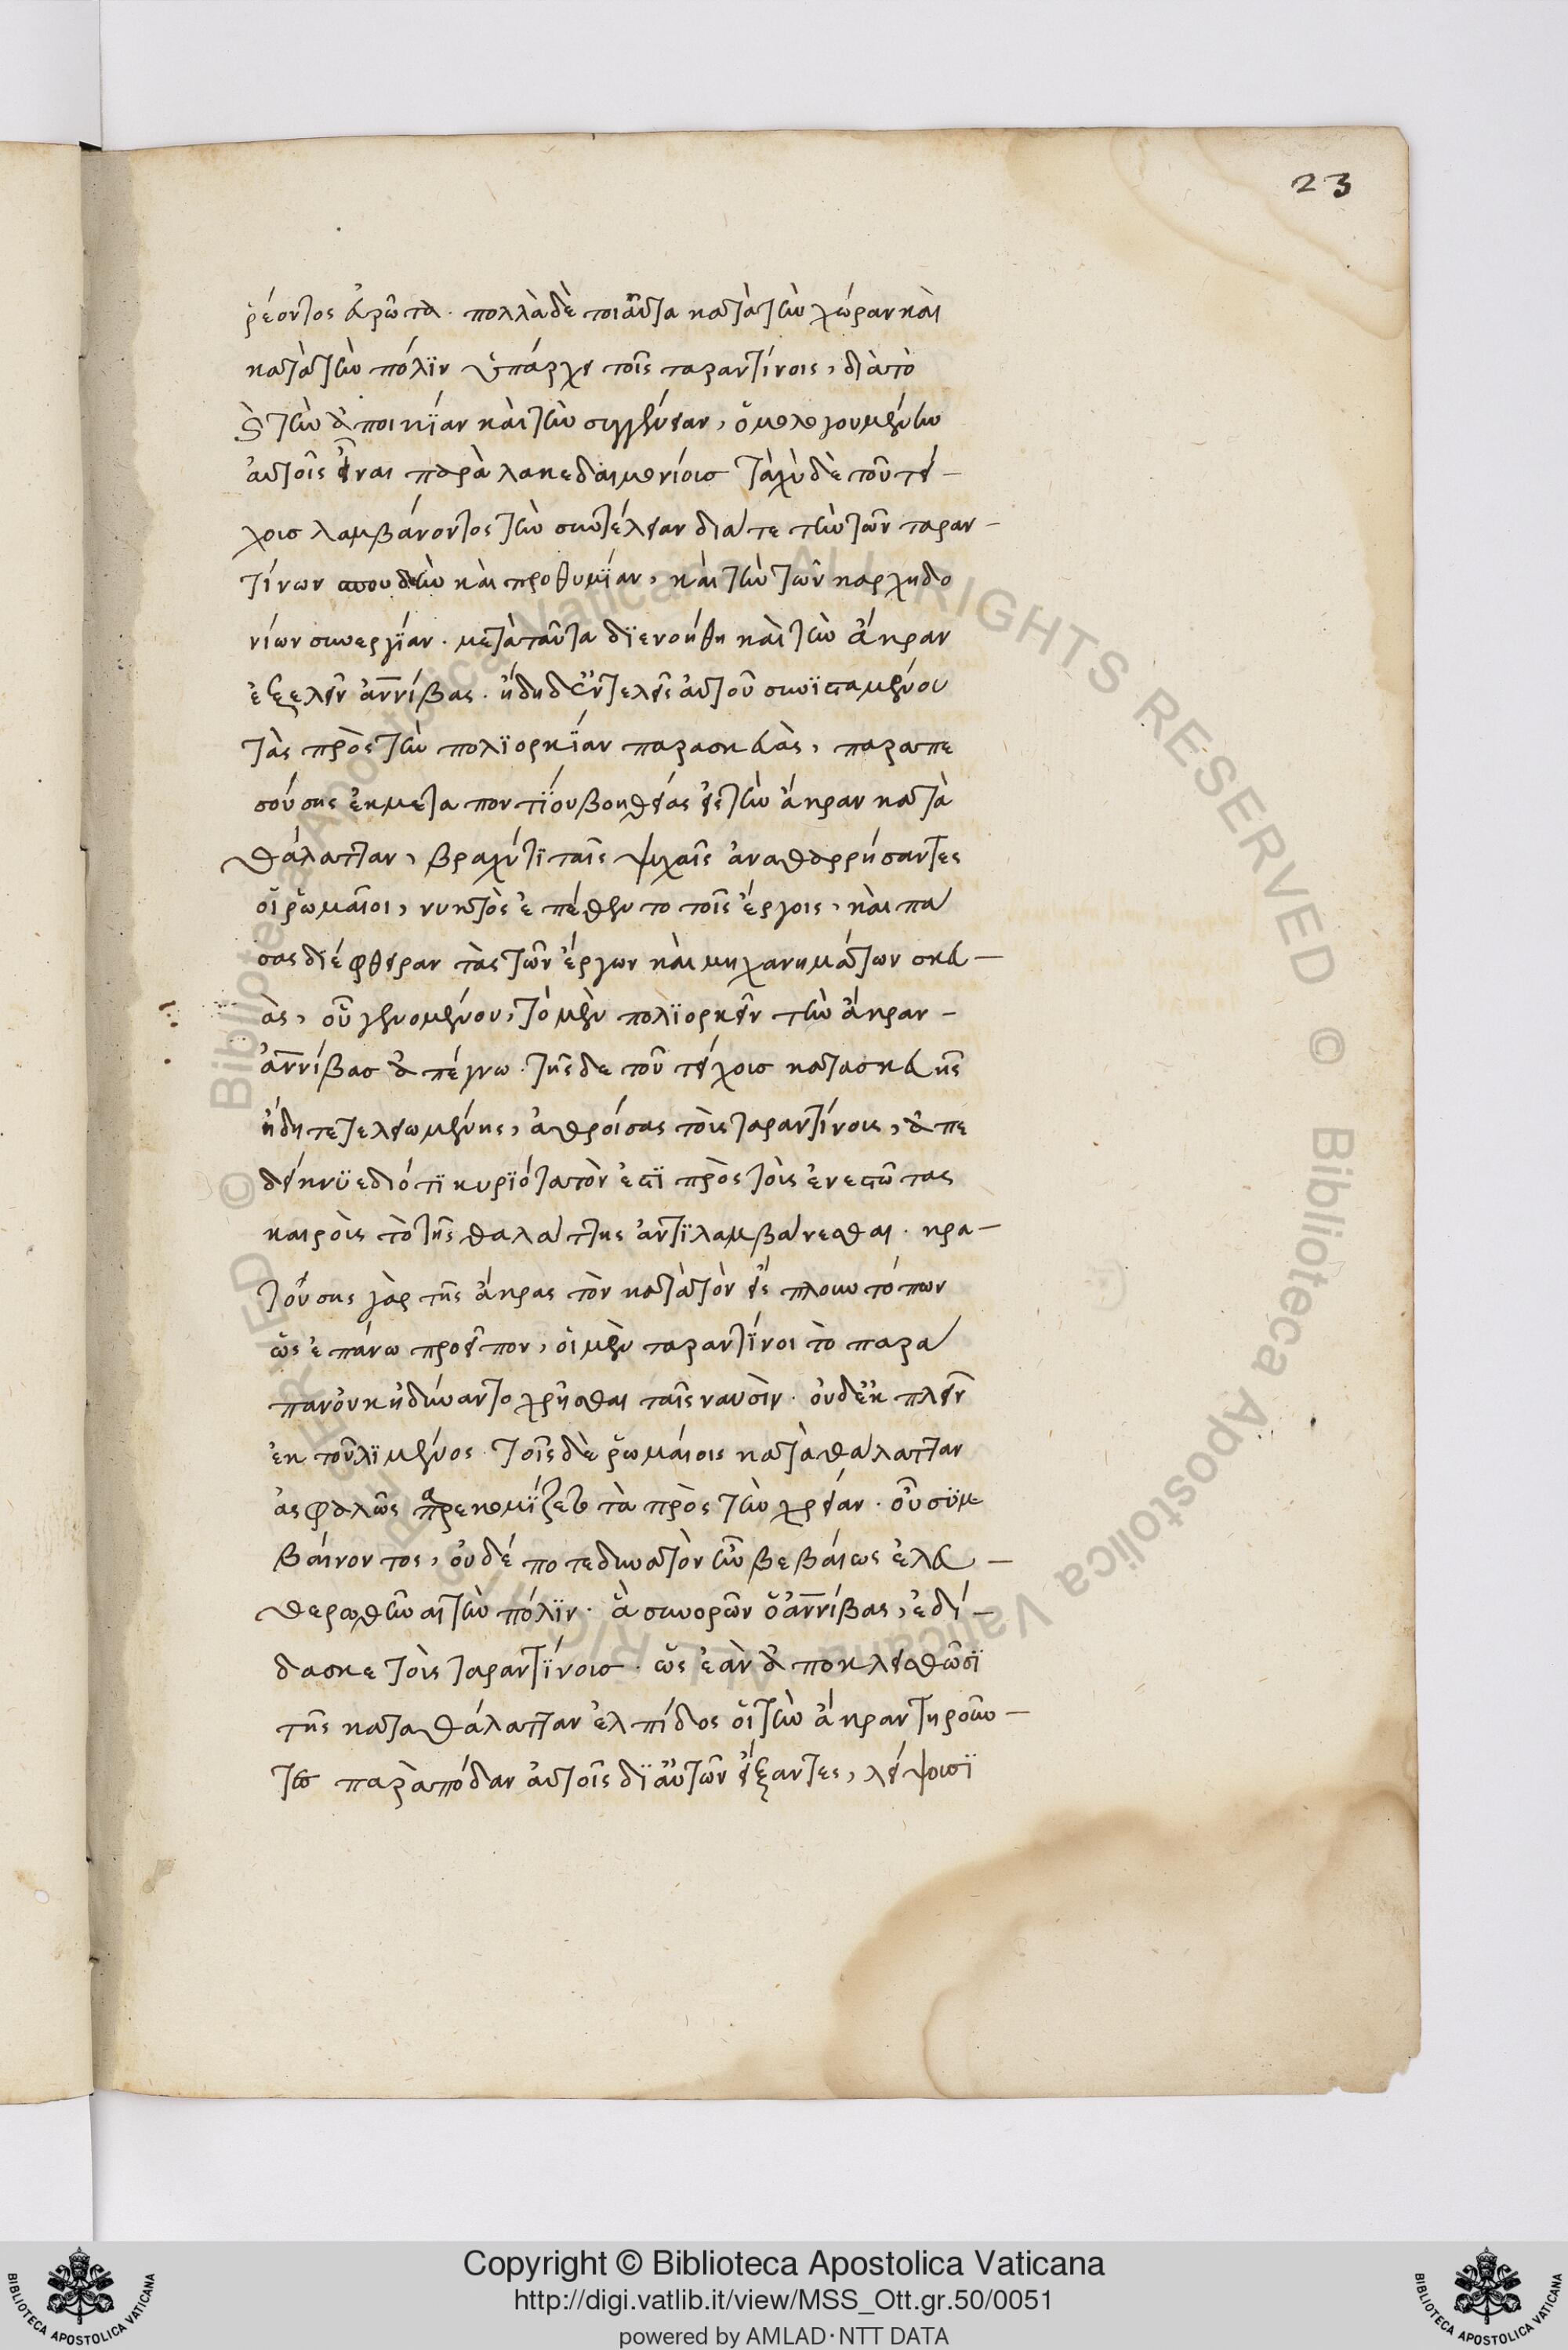 23
ῥέοντος εὐρῶτα. πολλὰ δὲ τοιαῦτα κατὰ τὴν χώραν καὶ
κατὰ τὴν πόλϊν ὑπάρχει τοῖς ταραντίνοις, διὰ τὸ
καὶ τὴν ἀποικΐαν καὶ τὴν συγγένειαν, ὁμολογουμένην
αὐτοῖς εἶναι παρὰ λακεδαιμονίοισ ταχὺ δὲ τοῦ τεί-
χουσ λαμβάνοντος τὴν συντέλειαν διά τε τὴν τῶν ταραν-
τίνων σπουδὴν καὶ προθυμΐαν, καὶ τὴν τῶν καρχηδο
νίων συνεργΐαν. μετὰ ταῦτα δϊενοήθη καὶ τὴν ἄκραν
ἐξελεῖν ἀννίβας. ἤδη δ' ἐντελεῖς αὐτοῦ συνϊσταμένου
τὰς πρὸς τὴν πολϊορκΐαν παρασκευὰς, παραπε
σούσης ἐκ μεταποντΐου βοηθείας εἰς τὴν ἄκραν κατὰ
θάλατταν, βραχύ τϊ ταῖς ψυχαῖς ἀναθαρρήσαντες
οἱ ῥωμαῖοι, νυκτὸς ἐπέθεντο τοῖς ἔργοις, καὶ πά
σας διέφθειραν τὰς τῶν ἔργων καὶ μηχανημάτων σκευ-
ὰς, οὗ γενομένου, τὸ μὲν πολϊορκεῖν τὴν ἄκραν-
ἀννίβασ ἀπέγνω. τῆς δε τοῦ τείχουσ κατασκευῆς
ἤδη τετελειωμένης, ἀθροίσας τοὺς ταραντίνους, ἀπε
δείκνϋε διότϊ κυρϊότατόν ἐστϊ πρὸς τοὺς ἐνεστῶτας
καιροὺς τὸ τῆς θαλάττης ἀντϊλαμβάνεσθαι. κρα-
τούσης γὰρ τῆς ἄκρας τὸν κατὰ τὸν εἴσπλουν τόπων
ὡς ἐπάνω προεῖπον, οἱ μὲν ταραντΐνοι τὸ παρά
παν οὐκ ἠδύναντο χρῆσθαι ταῖς ναυσὶν. οὐδ' ἐκπλεῖν
ἐκ τοῦ λϊμένος. τοῖς δὲ ῥωμαίοις κατὰ θάλατταν
ἀσφαλῶς παρεκομΐζετο τὰ πρὸς τὴν χρείαν. οὗ σϋμ
βαίνοντος, οὐδέποτε δυνατὸν ἦν βεβαίως ἐλευ-
θερωθῆναι τὴν πόλϊν. ἃ συνορῶν ὁ ἀννίβας, ἐδί-
δασκε τοὺς ταραντΐνουσ. ὡς ἐὰν ἀποκλεισθῶσϊ
τῆς κατὰ θάλατταν ἐλπίδος οἱ τὴν ἄκραν τηροῦν-
τες παρὰ πόδαν αὐτοῖς δϊ αὑτῶν εἴξαντες, λείψουσϊ
Copyright © Biblioteca Apostolica Vaticana
http://digi.vatlib.it/view/MSS_Ott.gr.50/0051
powered by AMLAD·NTT DATA